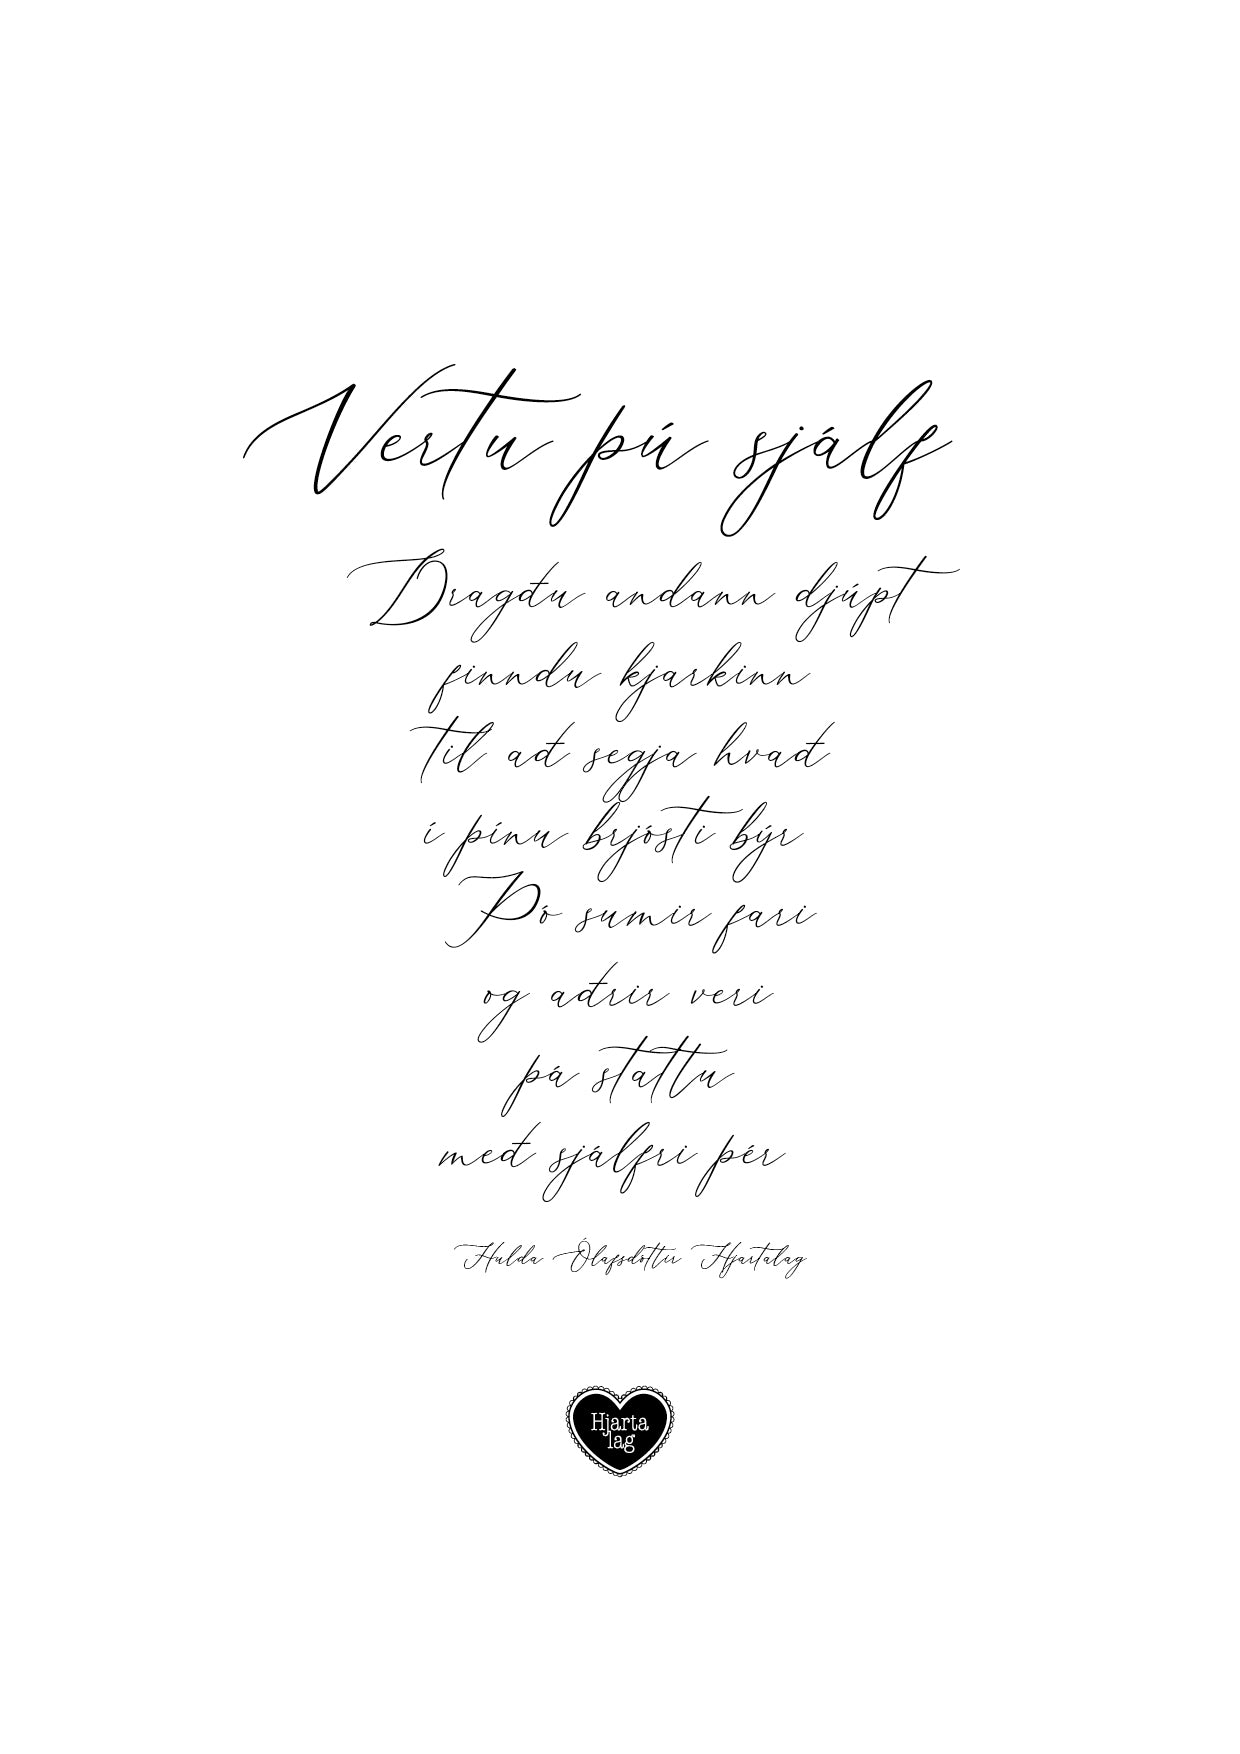 Vertu þú sjálf
Dragðu andann djúpt
finndu kjarkinn
til að segja hvað
í þínu brjósti býr
Þó sumir fari
og aðrir veri
þá stattu
með sjálfri þér
Hulda Ólafsdóttir Hjartalag
Hjarta
lag